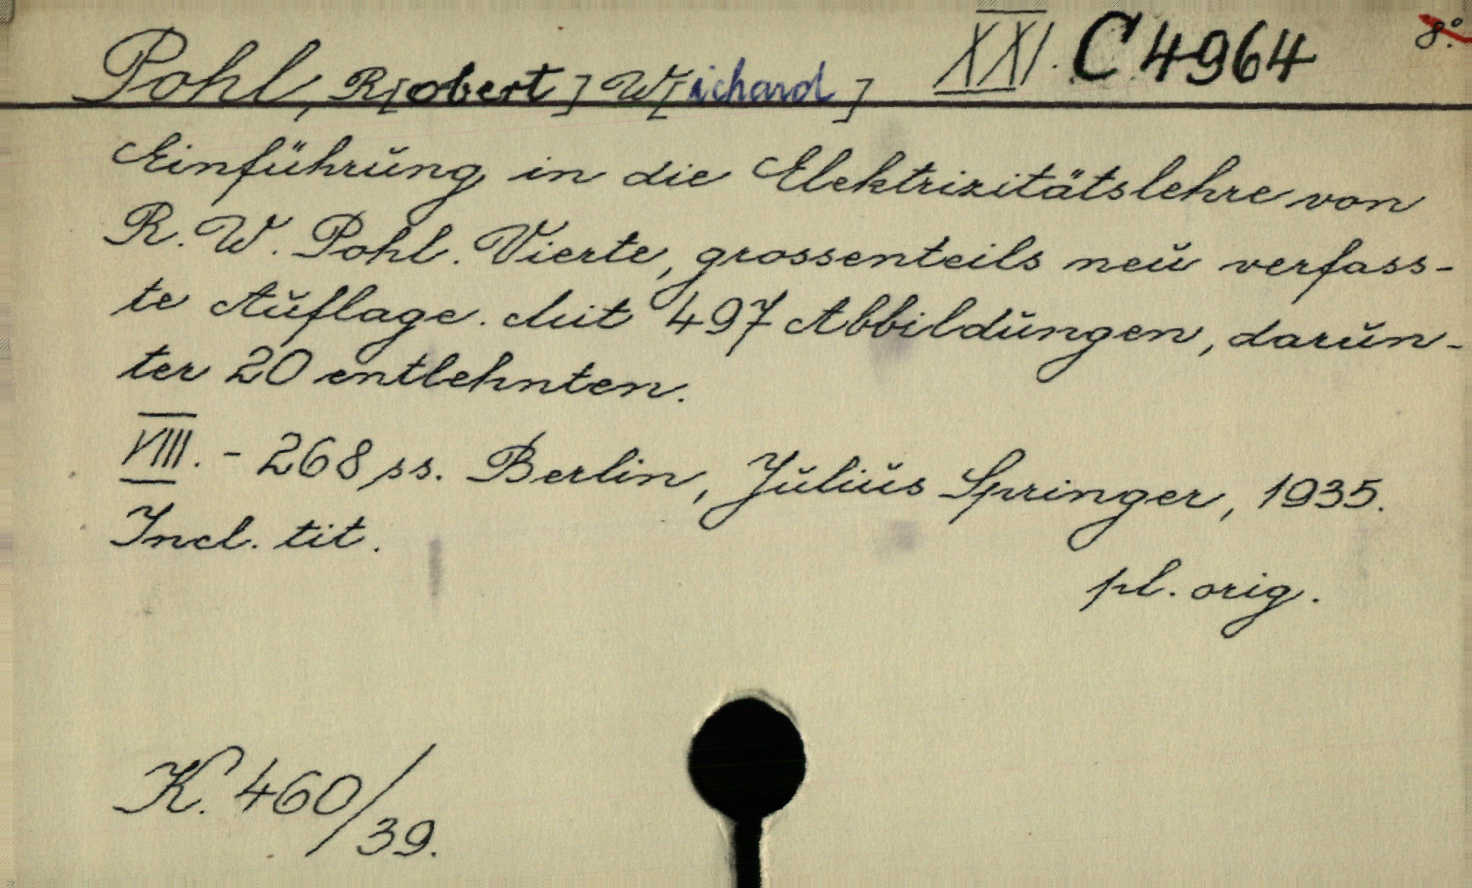 XXI. C 4964 8°.
Pohl, R[obert] W[ichard]
Einführung in die Elektrizitätslehre von
R. W. Pohl. Vierte, grossenteils neu verfass-
te Auflage. Mit 497 Abbildungen, darun-
ter 20 entlehnten.
VIII. - 268 ss. Berlin, Julius Springer, 1935.
Incl. tit.
pl. orig.
K. 460/39.